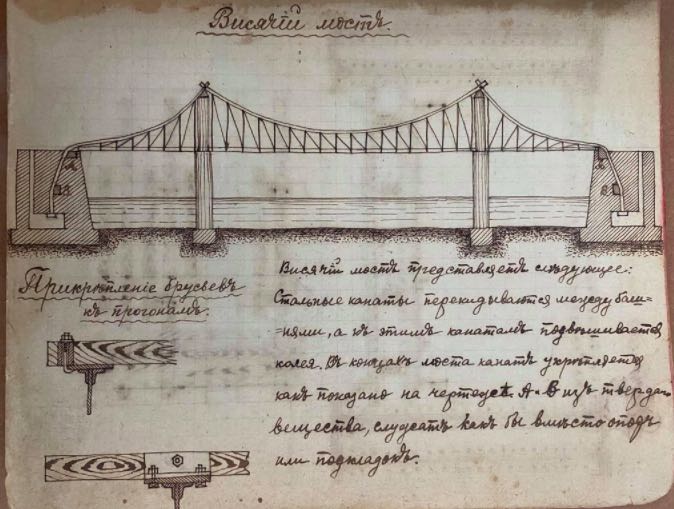 Висячій мостъ.
А
В
А
В
Прикрѣпленіе брусьевъ
къ прогонамъ.
Висячій мостъ представляетъ слѣдующее:
Стальные канаты перекидываются между баш=
=нями, а къ этимъ канатамъ подвѣшивается
колея. Въ концахъ моста канатъ укрѣпляется
какъ показано на чертежѣ. А и В изъ твердаго
вещества, служатъ какъ бы вмѣсто опоръ
или подкладокъ.